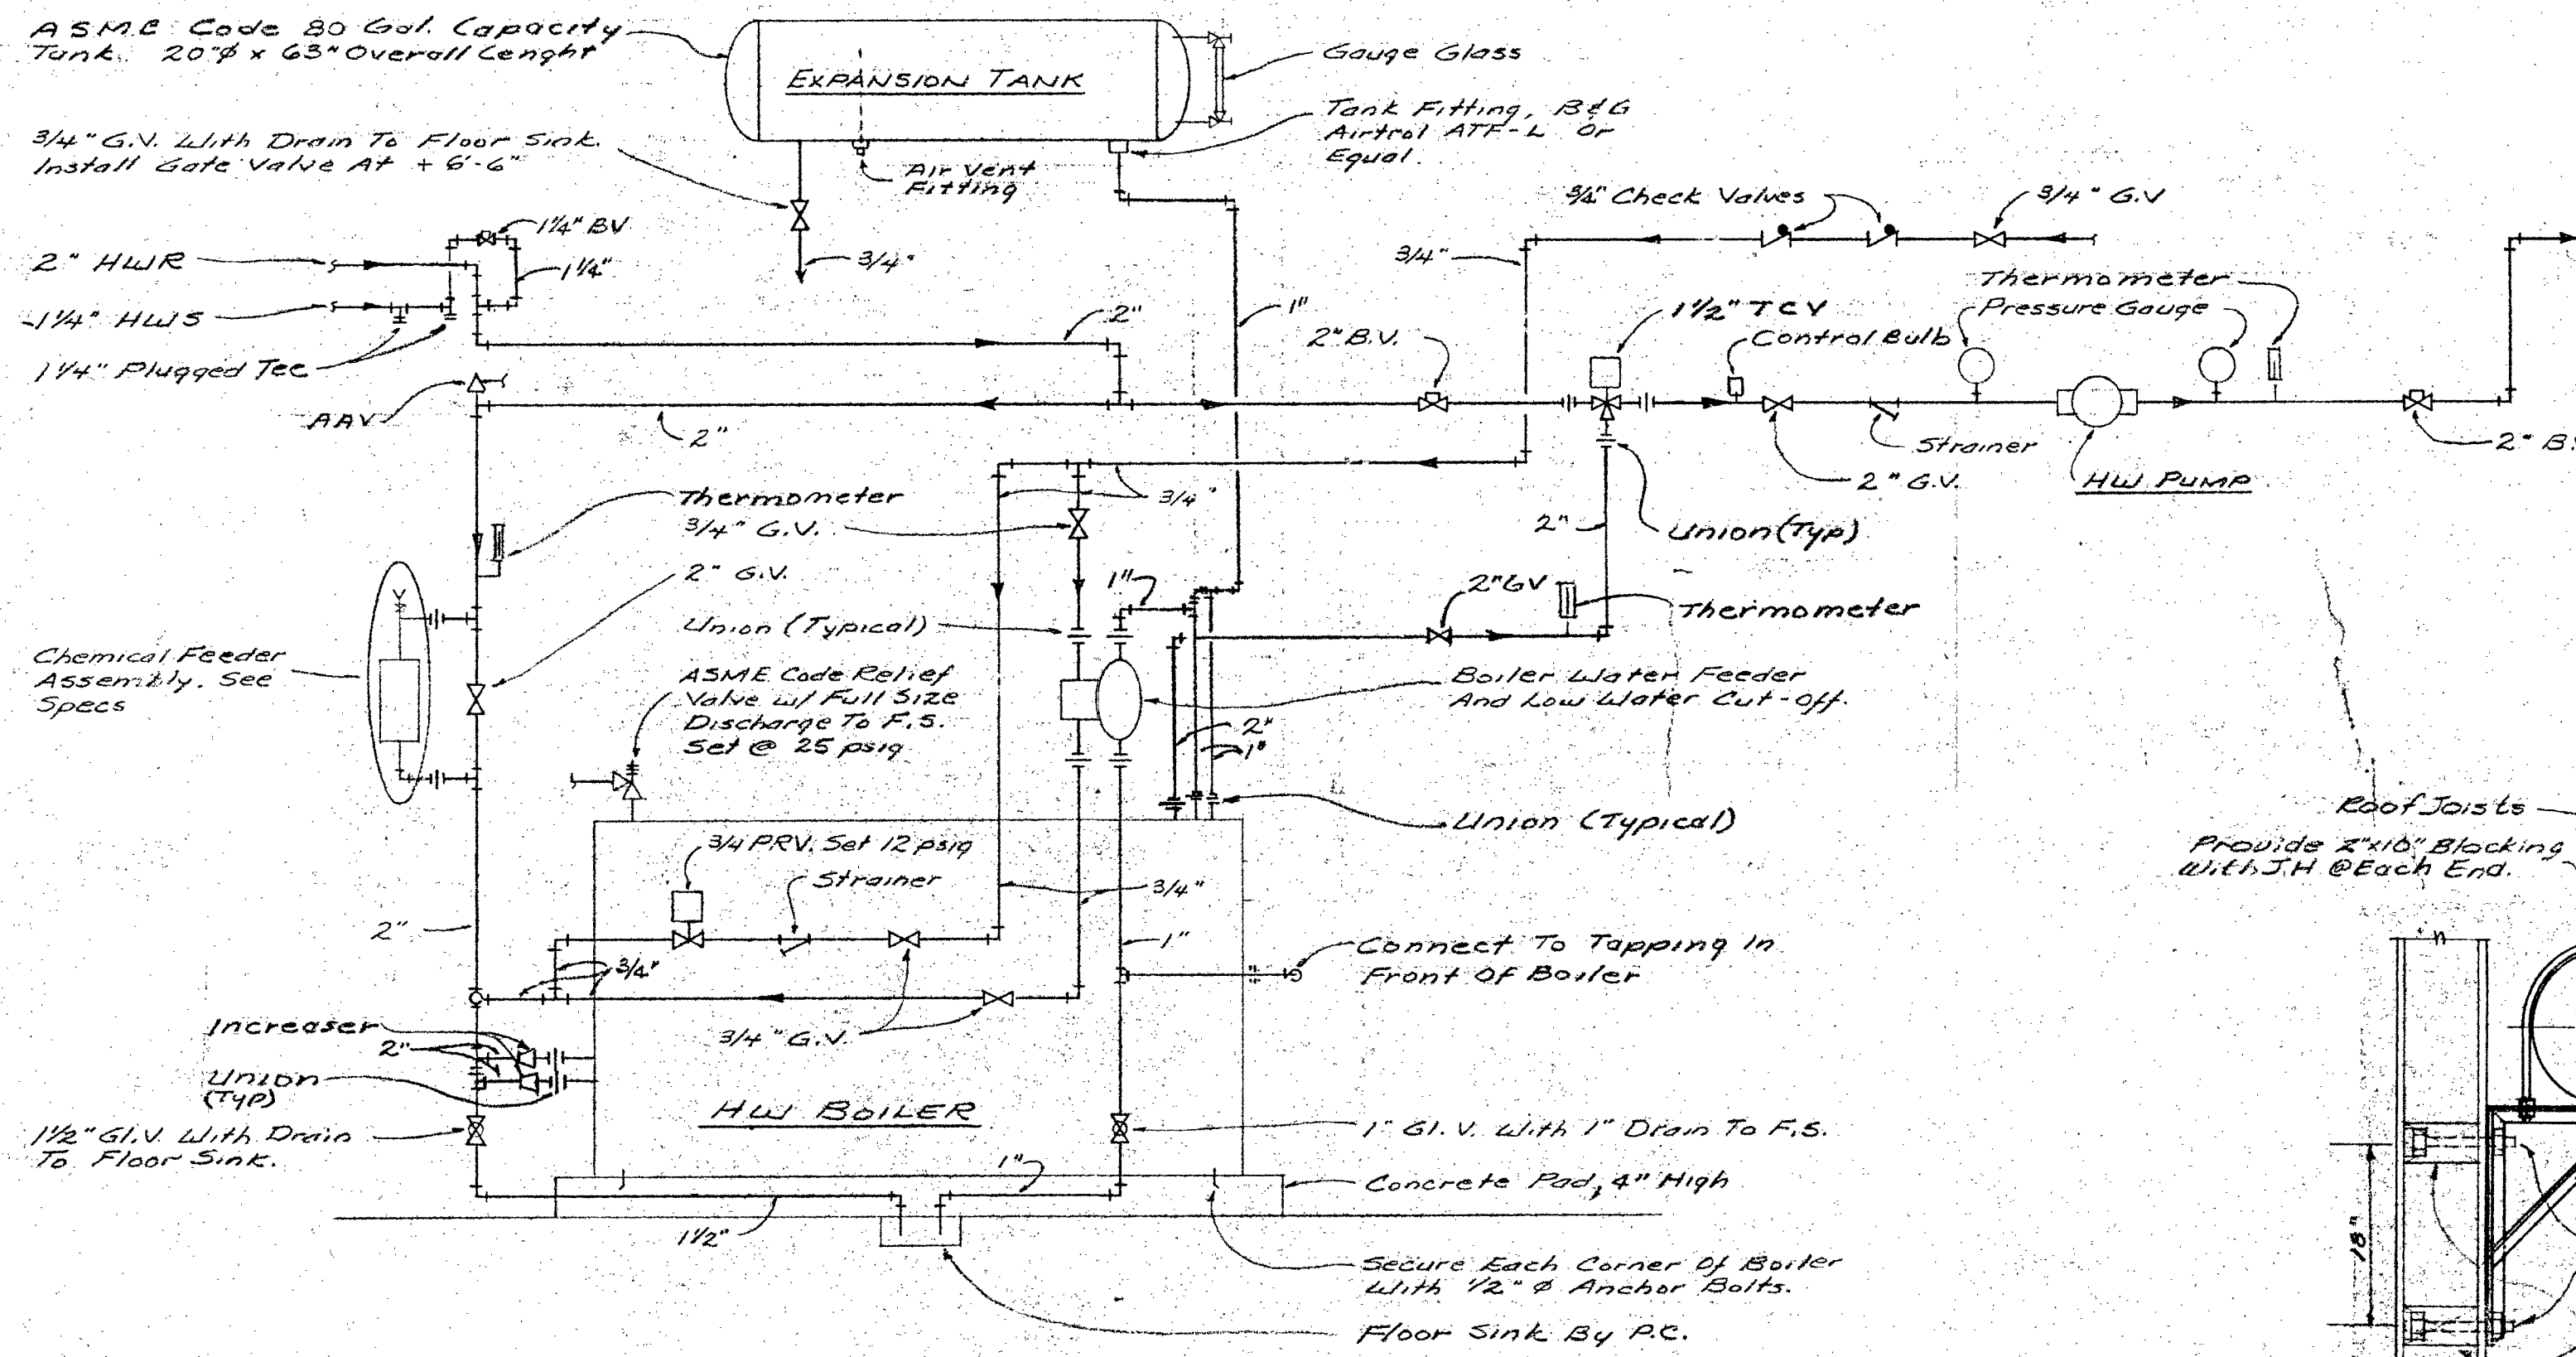 ASME Code 80 Gal. Capacity
Tank. 20"ø x 63" Overall Lenght
EXPANSION TANK
Gauge Glass
Tank Fitting, B&G
Airtrol ATF-L Or
Equal.
3/4" G.V. With Drain To Floor Sink.
Install Gate Valve At + 6'-6"
Air Vent
Fitting
3/4" Check Valves
3/4" G.V
1 1/4" BV
2" HWR
1 1/4"
3/4"
3/4"
Thermometer
Pressure Gauge
1 1/4" HWS
1"
2"
1 1/2" TCV
2" B.V.
Control Bulb
1 1/4" Plugged Tee
AAV
2"
Strainer
2" B.
2" G.V.
HW PUMP
Thermometer
3/4"
3/4" G.V.
2"
Union (Typ)
2" G.V.
1"
2" GV
Thermometer
Union (Typical)
Chemical Feeder
Assembly. See
Specs
ASME Code Relief
Valve w/ Full Size
Discharge To F.S.
Set @ 25 psig
Boiler Water Feeder
And Low Water Cut-Off.
2"
1"
Union (Typical)
Roof Joists
Provide 2"x10" Blocking
With J.H @ Each End.
3/4 PRV. Set 12 psig
Strainer
3/4"
2"
1"
Connect To Tapping In
Front Of Boiler
3/4"
Increaser
2"
3/4" G.V.
Union
(Typ)
HW BOILER
1 1/2" Gl.V. With Drain
To Floor Sink.
1" Gl. V. With 1" Drain To F.S.
1"
Concrete Pad, 4" High
1 1/2"
18"
Secure Each Corner Of Boiler
With 1/2" ø Anchor Bolts.
Floor Sink By P.C.